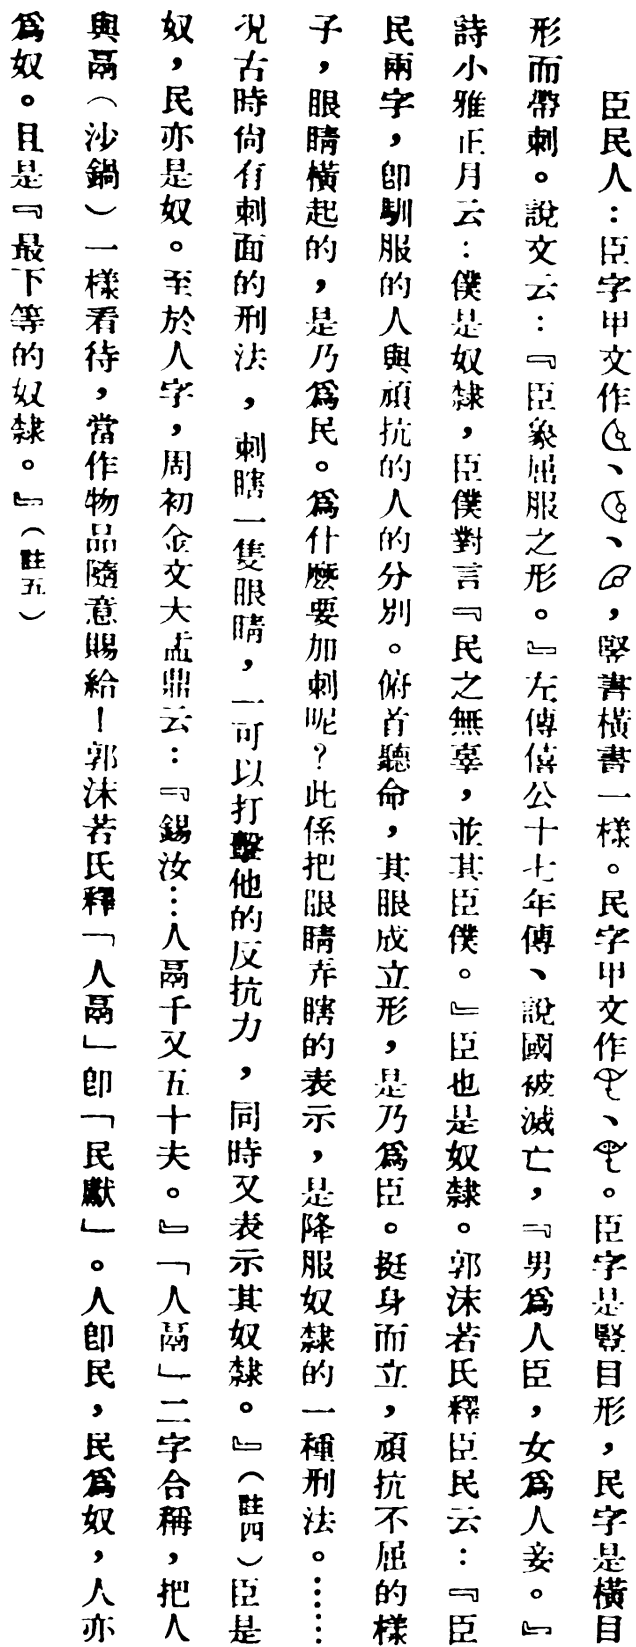 臣民人：臣字甲文作、、，豎書橫書一樣。民字甲文作、。臣字是豎目形，民字是橫目
形而帶刺。說文云：『臣象屈服之形。』左傳僖公十七年傳、說國被滅亡，『男爲人臣，女爲人妾。』
詩小雅正月云：僕是奴隸，臣僕對言『民之無辜，並其臣僕。』臣也是奴隸。郭沫若氏釋臣民云：『臣
民兩字，卽馴服的人與頑抗的人的分別。俯首聽命，其眼成立形，是乃爲臣。挺身而立，頑抗不屈的樣
子，眼睛橫起的，是乃爲民。爲什麼要加刺呢？此係把眼睛弄瞎的表示，是降服奴隸的一種刑法。……
況古時尙有刺面的刑法，刺瞎一隻眼睛，一可以打擊他的反抗力，同時又表示其奴隸。』（註四）臣是
奴，民亦是奴。至於人字，周初金文大盂鼎云：『錫汝…人鬲千又五十夫。』「人鬲」二字合稱，把人
與鬲（沙鍋）一樣看待，當作物品隨意賜給！郭沫若氏釋「人鬲」卽「民獻」。人卽民，民爲奴，人亦
爲奴。且是『最下等的奴隸。』（註五）